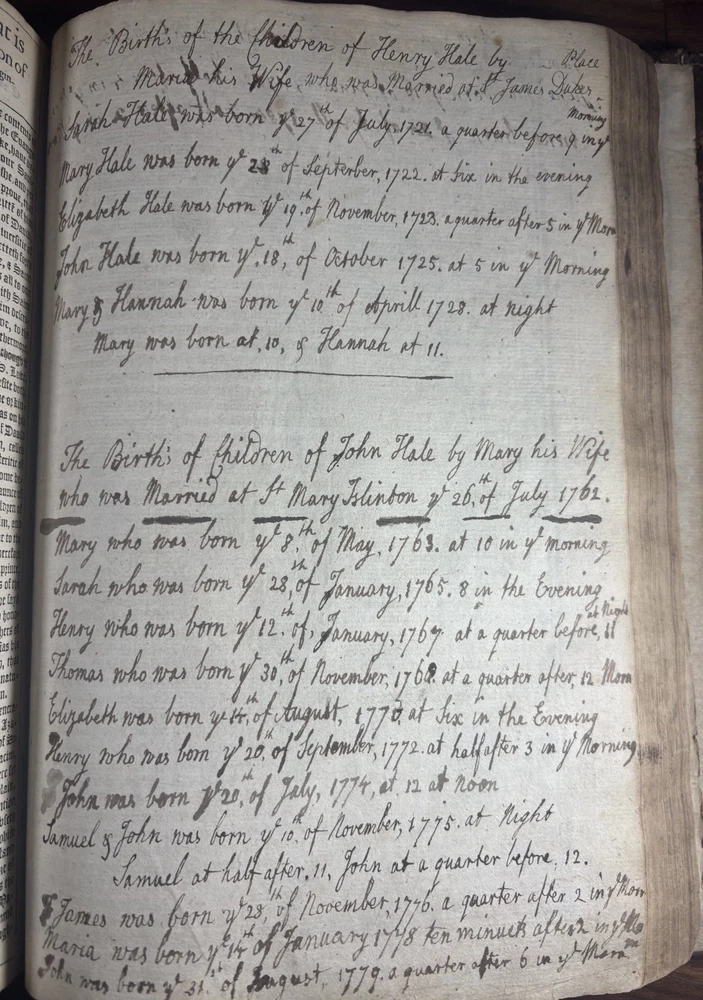 The Birth's of the Children of Henry Hale by Place
Maria his Wife who was Married at St James Dukes
Sarah Hale was born ye 27th of July, 1721. a quarter before 9 in ye Morning
Mary Hale was born ye 28th of September, 1722. at Six in the evening
Elizabeth Hale was born ye 19th of November, 1723. a quarter after 5 in ye Morn
John Hale was born ye. 18,th of October 1725. at 5 in ye Morning
Mary & Hannah was born ye 10th of Aprill 1728. at night
Mary was born at, 10, & Hannah at 11.
The Birth's of Children of John Hale by Mary his Wife
who was Married at St Mary Islinton ye 26,th of July 1762.
Mary who was born ye 8,th of May, 1763. at 10 in ye morning
Sarah who was born ye 28,th of January, 1765. 8 in the Evening
Henry who was born ye 12,th of, January, 1767 at a quarter before, 11 at Night
Thomas who was born ye 30,th of November, 1768. at a quarter after, 12 Morn
Elizabeth was born ye 14,th of August, 1770, at Six in the Evening
Henry who was born ye 20,th of September, 1772. at half after 3 in ye Morning
John was born ye 20,th of July, 1774, at, 12 at noon
Samuel & John was born ye 10,th of November, 1775. at Night
Samuel at half after, 11, John at a quarter before, 12.
James was born ye 28,th of November, 1776. a quarter after 2 in ye Morn
Maria was born ye 14th of January 1778 ten minuets after 2 in ye Mo
John was born ye 31.st of August, 1779. a quarter after 6 in ye Morn